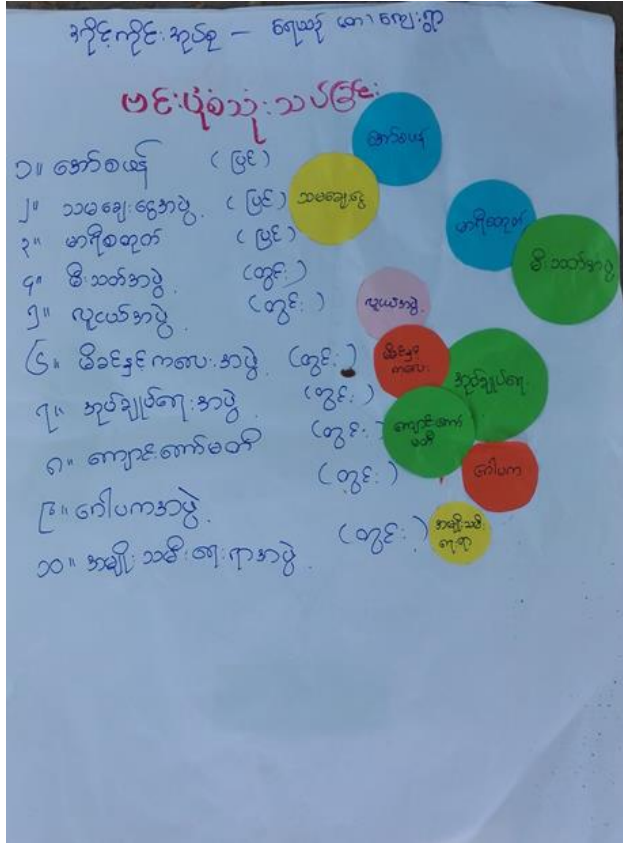 ခိုင်ခိုင်းအုပ်စု - ရေယဉ် တော ကျေးရွာ
ဗင်းပုံစံသုံးသပ်ခြင်း
၁။ အော်စဖန် (ပြင်)
၂။ သမချေးငွေအဖွဲ့ (ပြင်)
၃။ မာရီစတုတ် (ပြင်)
၄။ မီးသတ်အဖွဲ့ (တွင်း)
၅။ လူငယ်အဖွဲ့ (တွင်း)
၆။ မိခင်နှင့်ကလေးအဖွဲ့ (တွင်း)
၇။ အုပ်ချုပ်ရေးအဖွဲ့ (တွင်း)
၈။ ကျောင်းကော်မတီ (တွင်း)
၉။ ဂေါပကအဖွဲ့ (တွင်း)
၁၀။ အမျိုးသမီးရေးရာအဖွဲ့ (တွင်း)
အော်စဖန်
သမချေးငွေ
မာရီစတုတ်
မီးသတ်အဖွဲ့
လူငယ်အဖွဲ့
မိခင်နှင့်
ကလေး
အုပ်ချုပ်ရေး
ကျောင်းကော်
မတီ
ဂေါပက
အမျိုးသမီး
ရေးရာ